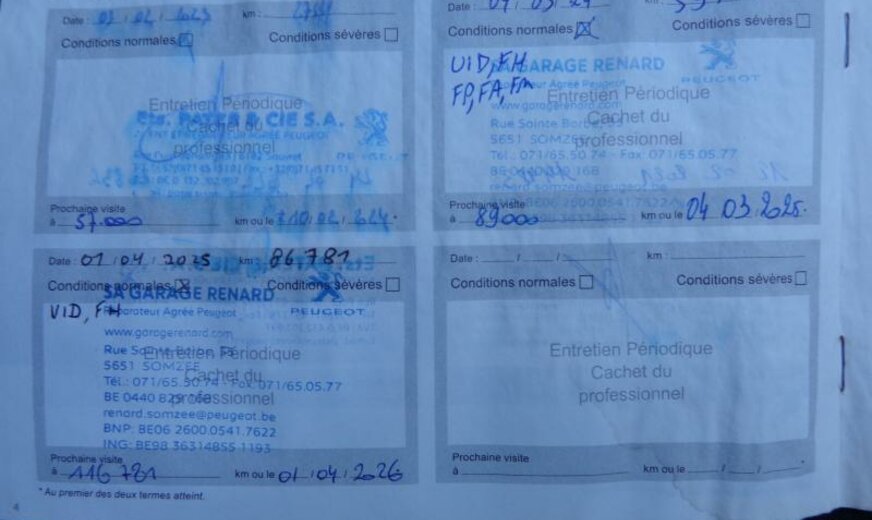 Date : 03 / 02 / 2023 km :
Conditions normales Conditions sévères
Entretien Périodique
Cachet du
professionnel
Ets. PATER & CIE S.A.
Prochaine visite
à 57.000 km ou le / 02 / 2024 *
Date : km :
Conditions normales Conditions sévères
VID, FH
FP, FA, Fm
SA GARAGE RENARD
Réparateur Agréé Peugeot
PEUGEOT
www.garagerenard.com
Entretien Périodique
Cachet du
professionnel
Rue Sainte
5651 SOMZEE
Tél.: 071/65.50.74 - Fax: 071/65.05.77
renard.somzee@peugeot.be
Prochaine visite
à 89000 km ou le 04 03 2025.
Date : 01 / 04 / 2025 km : 86 781
Conditions normales Conditions sévères
SA GARAGE RENARD
VID, FH
Réparateur Agréé Peugeot
PEUGEOT
www.garagerenard.com
Entretien Périodique
Cachet du
professionnel
5651 SOMZEE
Tél.: 071/65.50.74 - Fax: 071/65.05.77
BE 0440 829 168
renard.somzee@peugeot.be
BNP: BE06 2600.0541.7622
ING: BE98 36314855 1193
Prochaine visite
à 116 781 km ou le 01 / 04 / 2026
Date : / / km :
Conditions normales Conditions sévères
Entretien Périodique
Cachet du
professionnel
Prochaine visite
à km ou le / / *
* Au premier des deux termes atteint.
4